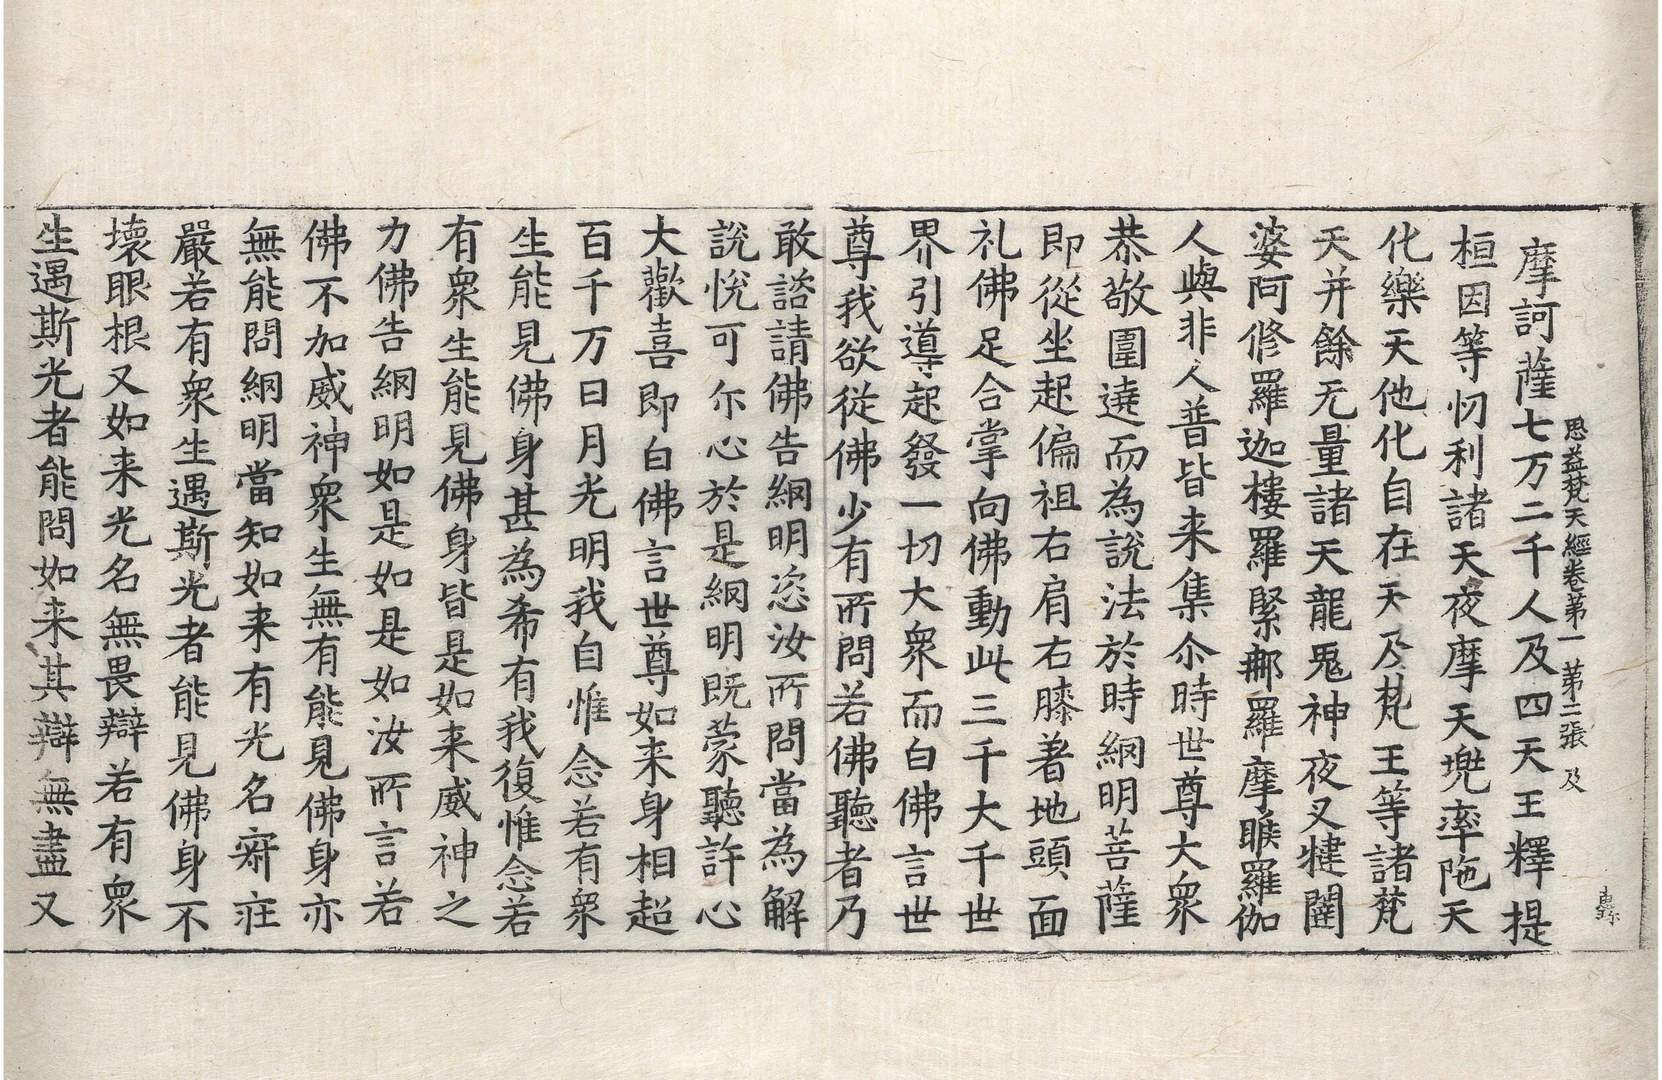 思益梵天經卷第一　第二張　及
摩訶薩七万二千人及四天王釋提
桓因等忉利諸天夜摩天兜率陁天
化樂天他化自在天及梵王等諸梵
天并餘无量諸天龍鬼神夜叉犍闥
婆阿修羅迦樓羅緊那羅摩睺羅伽
人與非人普皆来集尒時世尊大衆
恭敬圍遶而為說法於時網明菩薩
即從坐起偏袒右肩右膝著地頭面
礼佛足合掌向佛動此三千大千世
界引導起發一切大衆而白佛言世
尊我欲從佛少有所問若佛聽者乃
敢諮請佛告網明恣汝所問當為解
說悅可尒心於是網明既蒙聽許心
大歡喜即白佛言世尊如来身相超
百千万日月光明我自惟念若有衆
生能見佛身甚為希有我復惟念若
有衆生能見佛身皆是如来威神之
力佛告網明如是如是如汝所言若
佛不加威神衆生無有能見佛身亦
無能問網明當知如来有光名寂莊
嚴若有衆生遇斯光者能見佛身不
壞眼根又如来光名無畏辯若有衆
生遇斯光者能問如来其辯無盡又